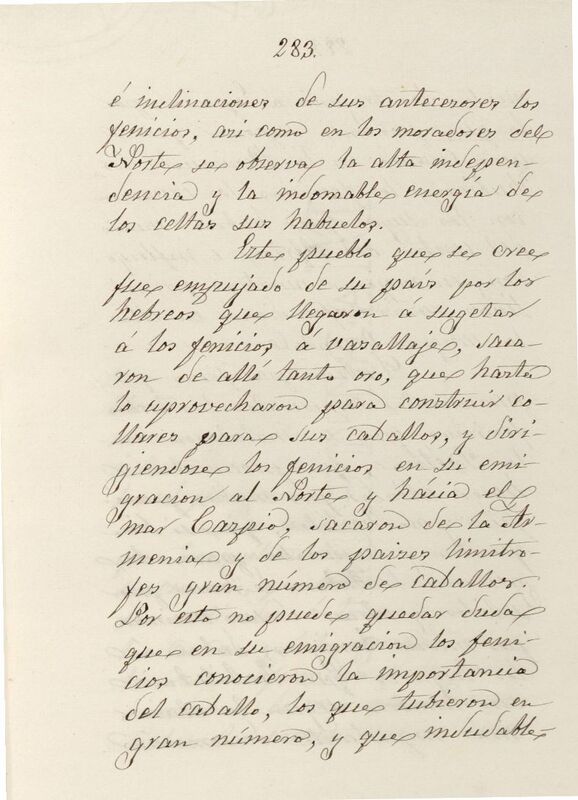 283.
é inclinaciones de sus antecesores los
fenicios, asi como en los moradores del
Norte se observa la alta indepen-
dencia y la indomable energía de
los celtas sus habuelos.
Este pueblo que se cree
fue empujado de su país por los
hebreos que llegaron á sugetar
á los fenicios á vasallaje, saca-
ron de allí tanto oro, que hasta
lo uprovecharon para construir co-
llares para sus caballos, y diri-
giendose los fenicios en su emi-
gracion al Norte y hácia el
mar Cazpio, sacaron de la Ar-
menia y de los paizes limitro-
fes gran número de caballos.
Por esto no puede quedar duda
que en su emigración los feni-
cios conocieron la importancia
del caballo, los que tubieron en
gran número, y que indudable-